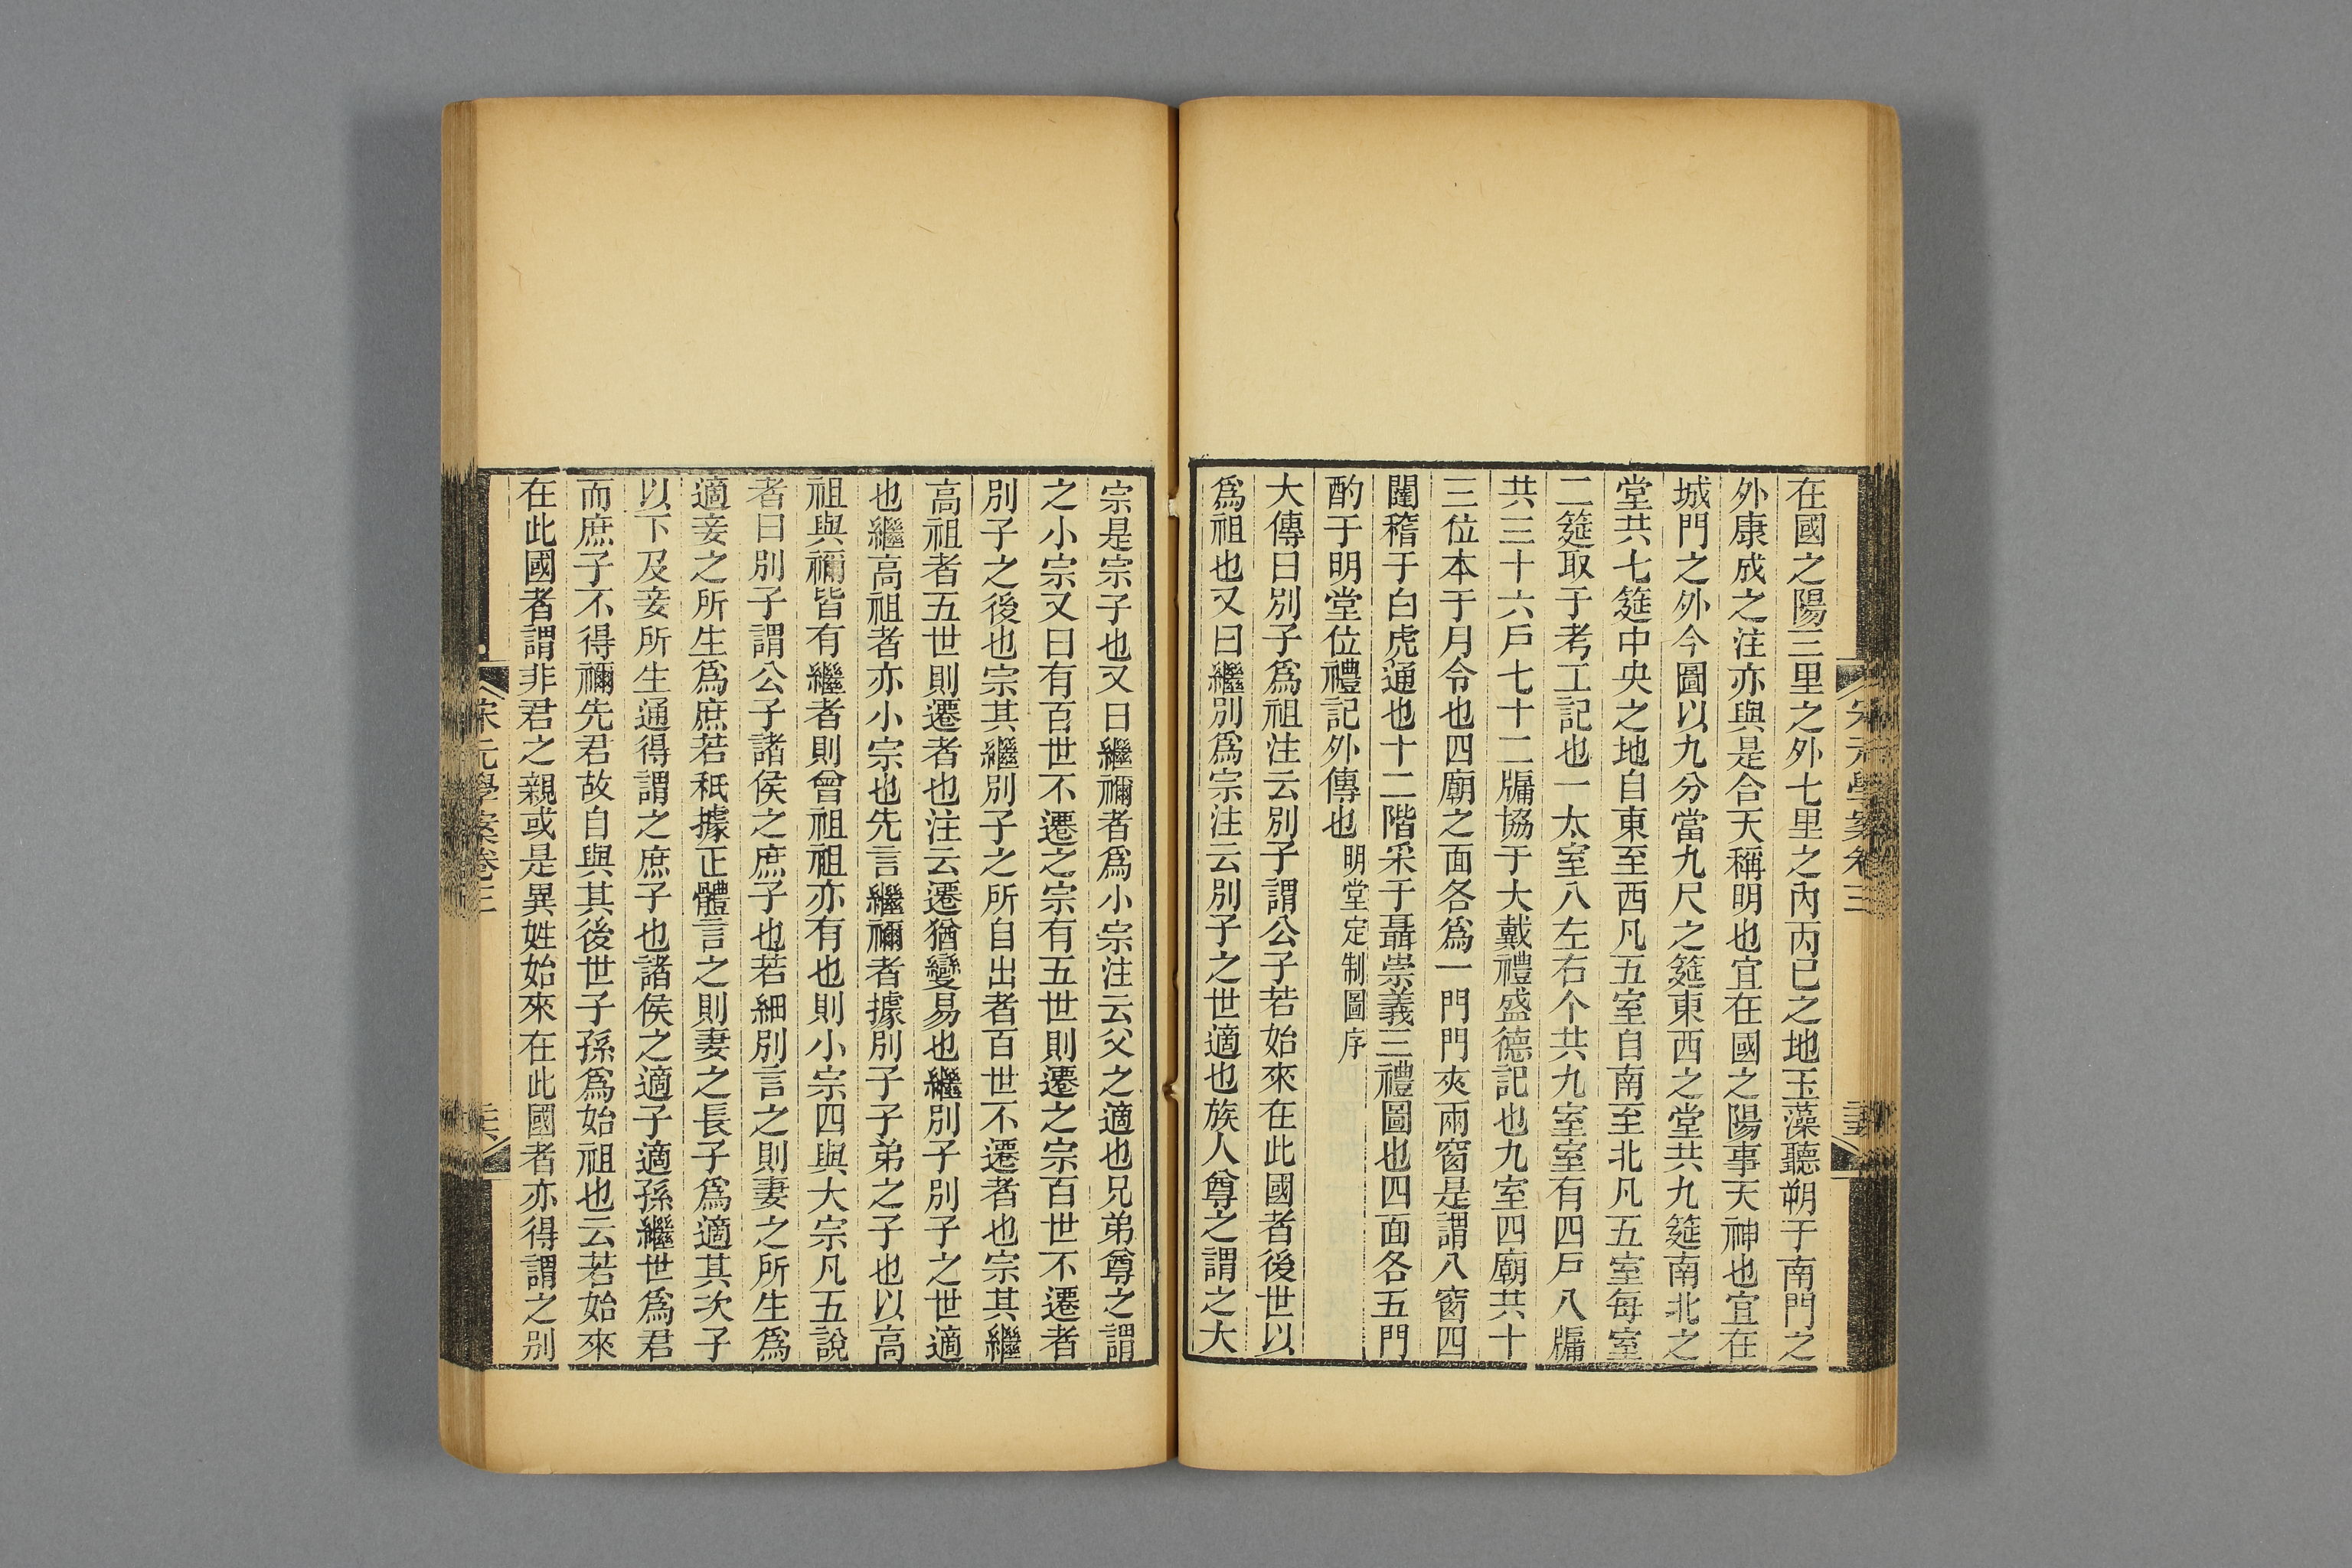 宋元學案卷三
在國之陽三里之外七里之內丙巳之地玉藻聽朔于南門之
外康成之注亦與是合夫稱明也宜在國之陽事天神也宜在
城門之外今圖以九分當九尺之筵東西之堂共九筵南北之
堂共七筵中央之地自東至西凡五室自南至北凡五室每室
二筵取于考工記也一太室八左右个共九室室有四戶八牖
共三十六戶七十二牖協于大戴禮盛德記也九室四廟共十
三位本于月令也四廟之面各爲一門門夾兩窗是謂八窗四
闥稽于白虎通也十二階采于聶崇義三禮圖也四面各五門
酌于明堂位禮記外傳也明堂定制圖序
大傳曰別子爲祖注云別子謂公子若始來在此國者後世以
爲祖也又曰繼別爲宗注云別子之世適也族人尊之謂之大
宗是宗子也又曰繼禰者爲小宗注云父之適也兄弟尊之謂
之小宗又曰有百世不遷之宗有五世則遷之宗百世不遷者
別子之後也宗其繼別子之所自出者百世不遷者也宗其繼
高祖者五世則遷者也注云遷猶變易也繼別子別子之世適
也繼高祖者亦小宗也先言繼禰者據別子子弟之子也以高
祖與禰皆有繼者則曾祖祖亦有也則小宗四與大宗凡五說
者曰別子謂公子諸侯之庶子也若細別言之則妻之所生爲
適妾之所生爲庶若秖據正體言之則妻之長子爲適其次子
以下及妾所生通得謂之庶子也諸侯之適子適孫繼世爲君
而庶子不得禰先君故自與其後世子孫爲始祖也云若始來
在此國者謂非君之親或是異姓始來在此國者亦得謂之別
宋元學案卷三